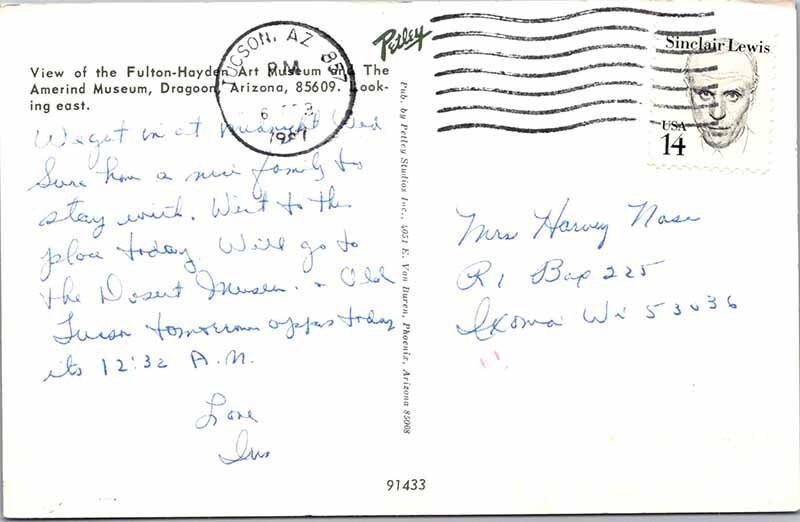 Petley
View of the Fulton-Hayden Art Museum and The
Amerind Museum, Dragoon, Arizona, 85609. Look-
ing east.
TUCSON, AZ 857
PM
6
1987
Sinclair Lewis
USA
14
We get in at midnight Wed
Sure have a nice family to
stay with. Went to this
place today. Will go to
the Desert Museum. & Old
Tucson tomorrow today
its 12:32 A.M.
Love
Pub. by Petley Studios Inc., 4051 E. Van Buren, Phoenix, Arizona 85008
Mrs Harvey Nase
R 1 Box 225
Ixonia Wi 53036
91433